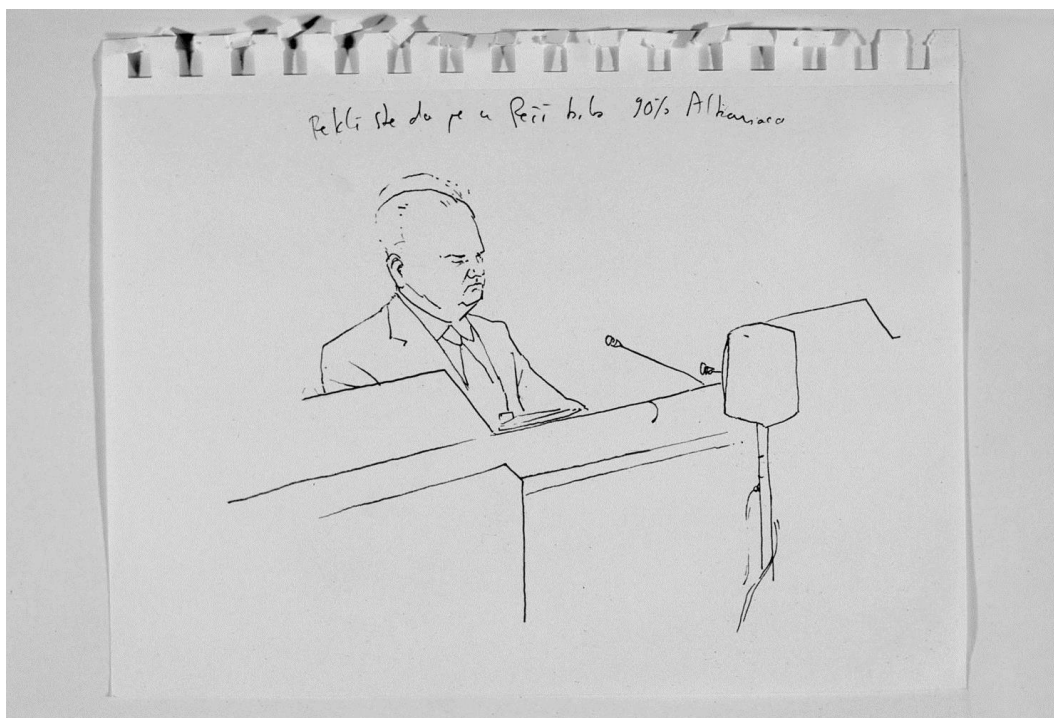 Rekli ste da je u Peći bilo 90% Albanaca